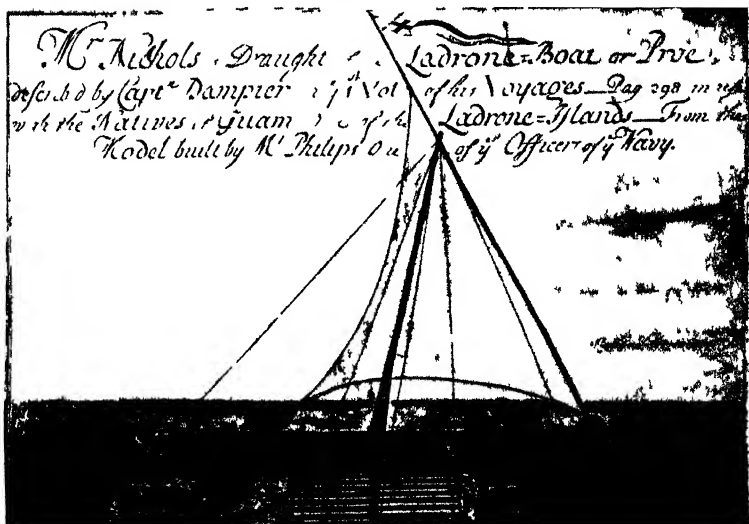 Mr Nichols Draught Ladrone=Boat or Proe
describ'd by Capt Dampier Vol of his Voyages_Pag 298 in use
with the Natives Guam of the Ladrone=Islands_From the
Model built by Mr Philips of ye Officers of ye Navy.